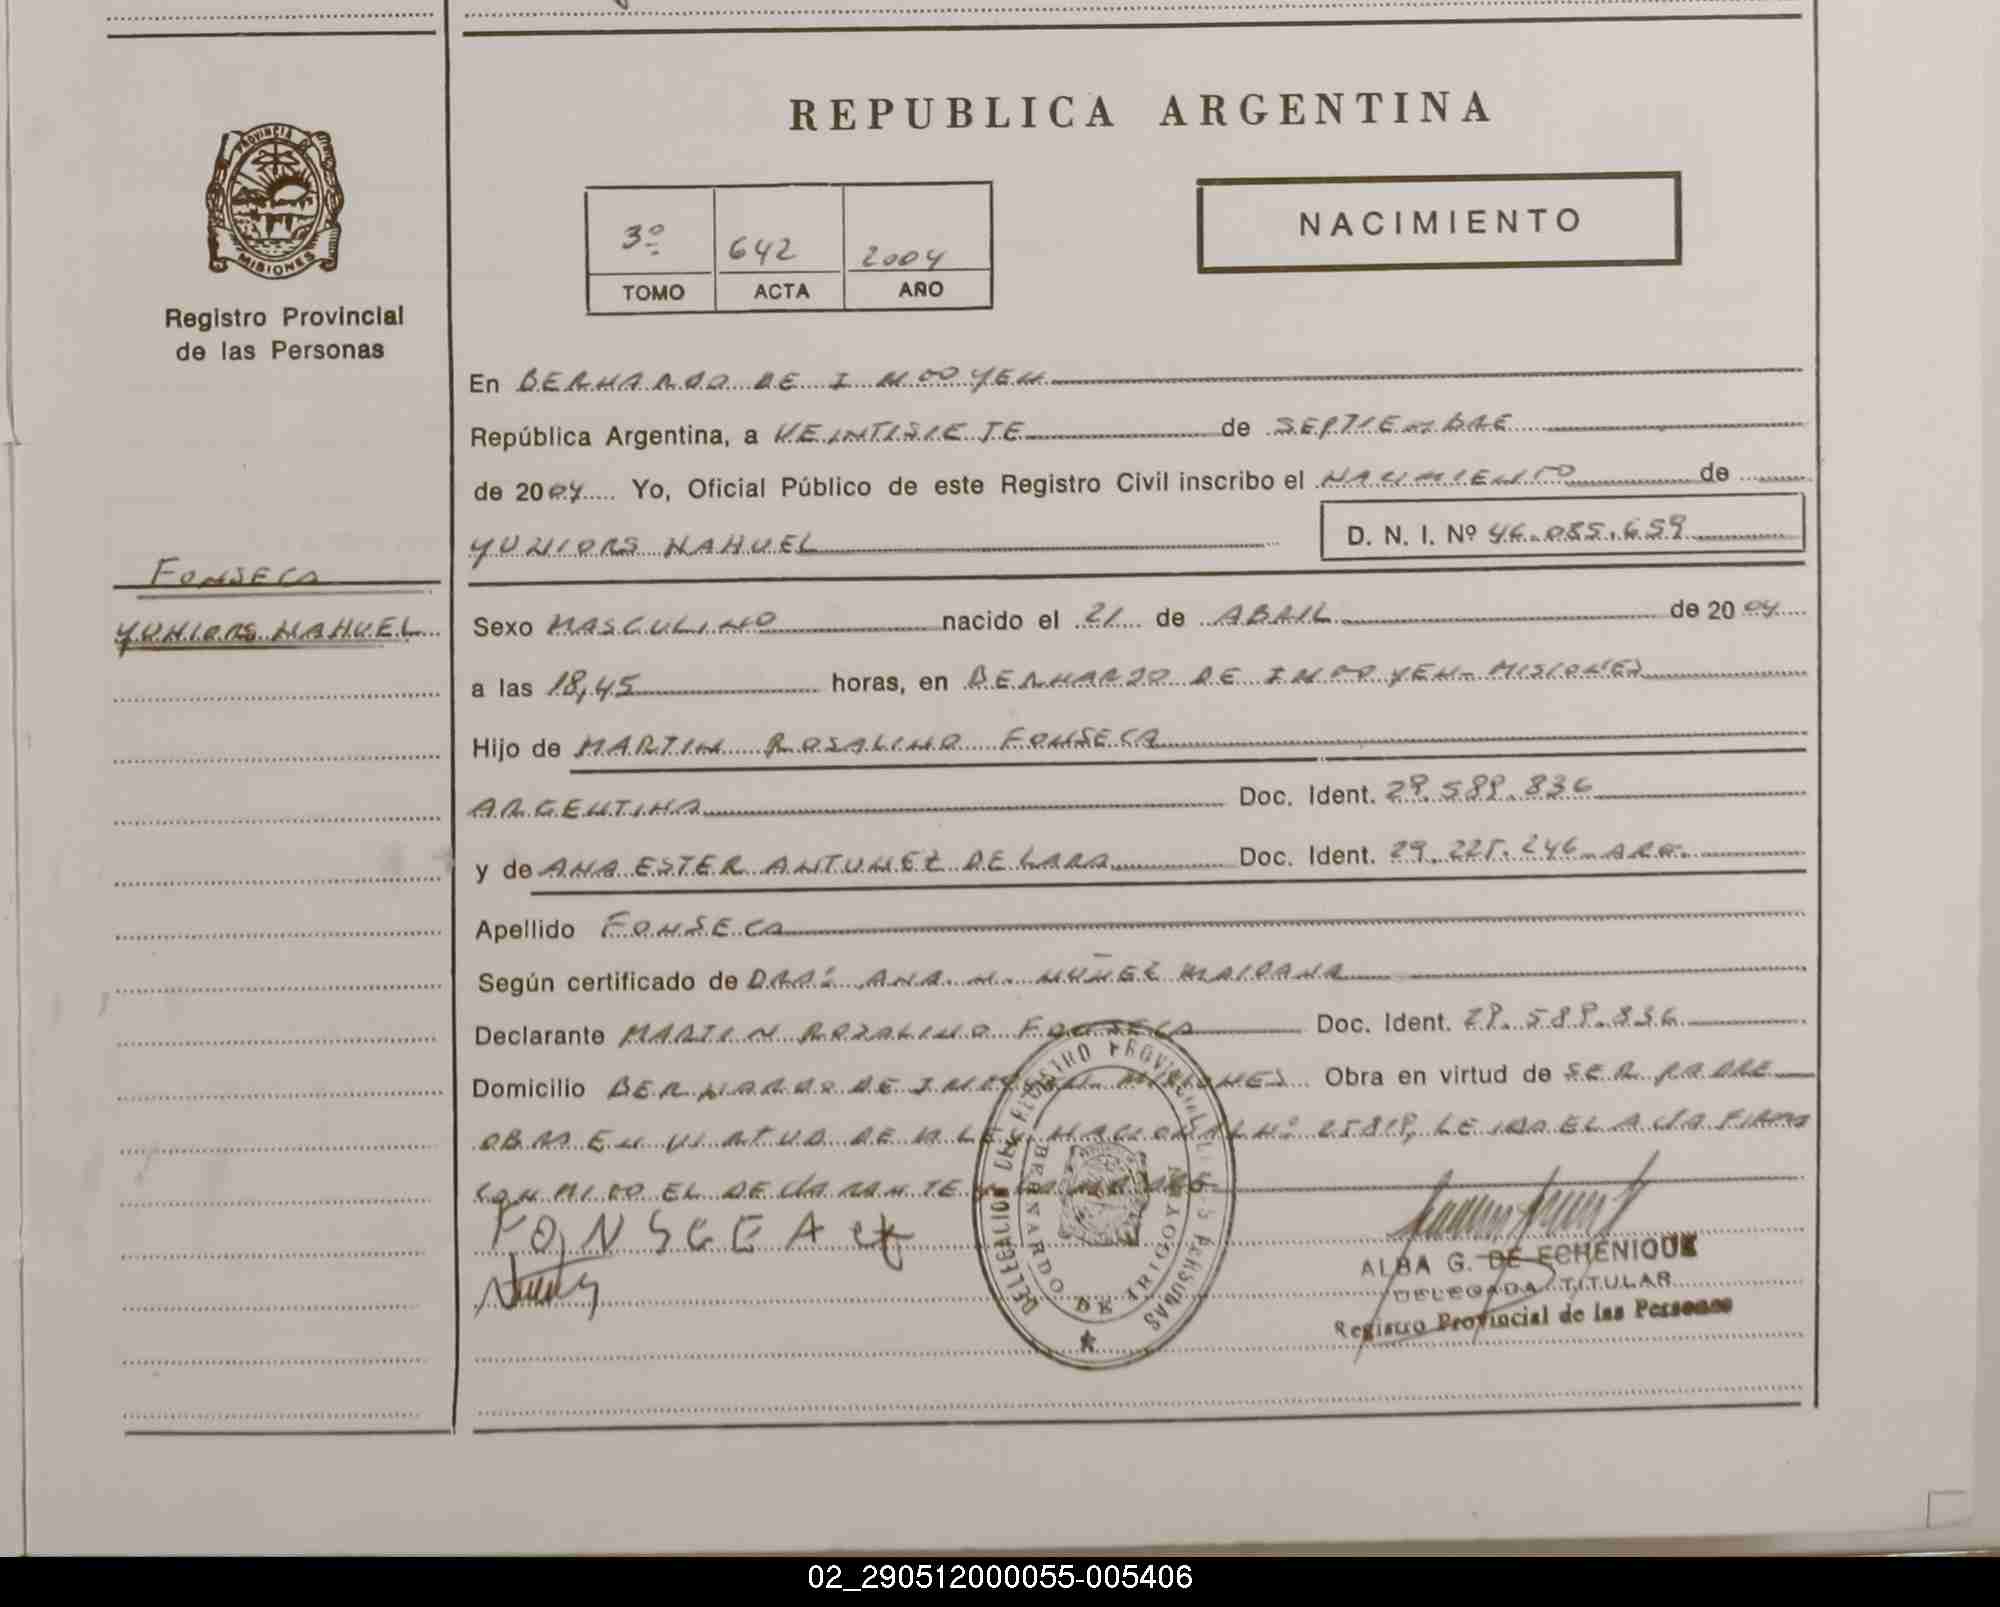 REPUBLICA ARGENTINA
PROVINCIA DE
MISIONES
Registro Provincial
de las Personas
3º 642 2004
TOMO ACTA AÑO
NACIMIENTO
En BERNARDO DE IRIGOYEN
República Argentina, a VEINTISIETE de SEPTIEMBRE
de 2004 Yo, Oficial Público de este Registro Civil inscribo el NACIMIENTO de
YUNIORS NAHUEL D. N. I. Nº 46.085.659
FONSECA
YUNIORS NAHUEL
Sexo MASCULINO nacido el 21 de ABRIL de 2004
a las 18,45 horas, en BERNARDO DE IRIGOYEN - MISIONES
Hijo de MARTIN ROSALINO FONSECA
ARGENTINA Doc. Ident. 29.589.836
y de ANA ESTER ANTUNEZ DE LARA Doc. Ident. 29.225.246 - ARG.
Apellido FONSECA
Según certificado de DRA: ANA. M. NUÑEZ MAIDANA
Declarante MARTIN ROSALINO FONSECA Doc. Ident. 29.589.836
Domicilio BERNARDO DE IRIGOYEN - MISIONES Obra en virtud de SER PADRE
OBRA EN VIRTUD DE LA LEY NACIONAL Nº 25819, LEIDA EL ACTA FIRMA
CONMIGO EL DECLARANTE
FONSCEA
DELEGACION DEL REGISTRO PROVINCIAL DE LAS PERSONAS
BERNARDO DE IRIGOYEN
ALBA G. DE ECHENIQUE
DELEGADA TITULAR
Registro Provincial de las Personas
02_290512000055-005406